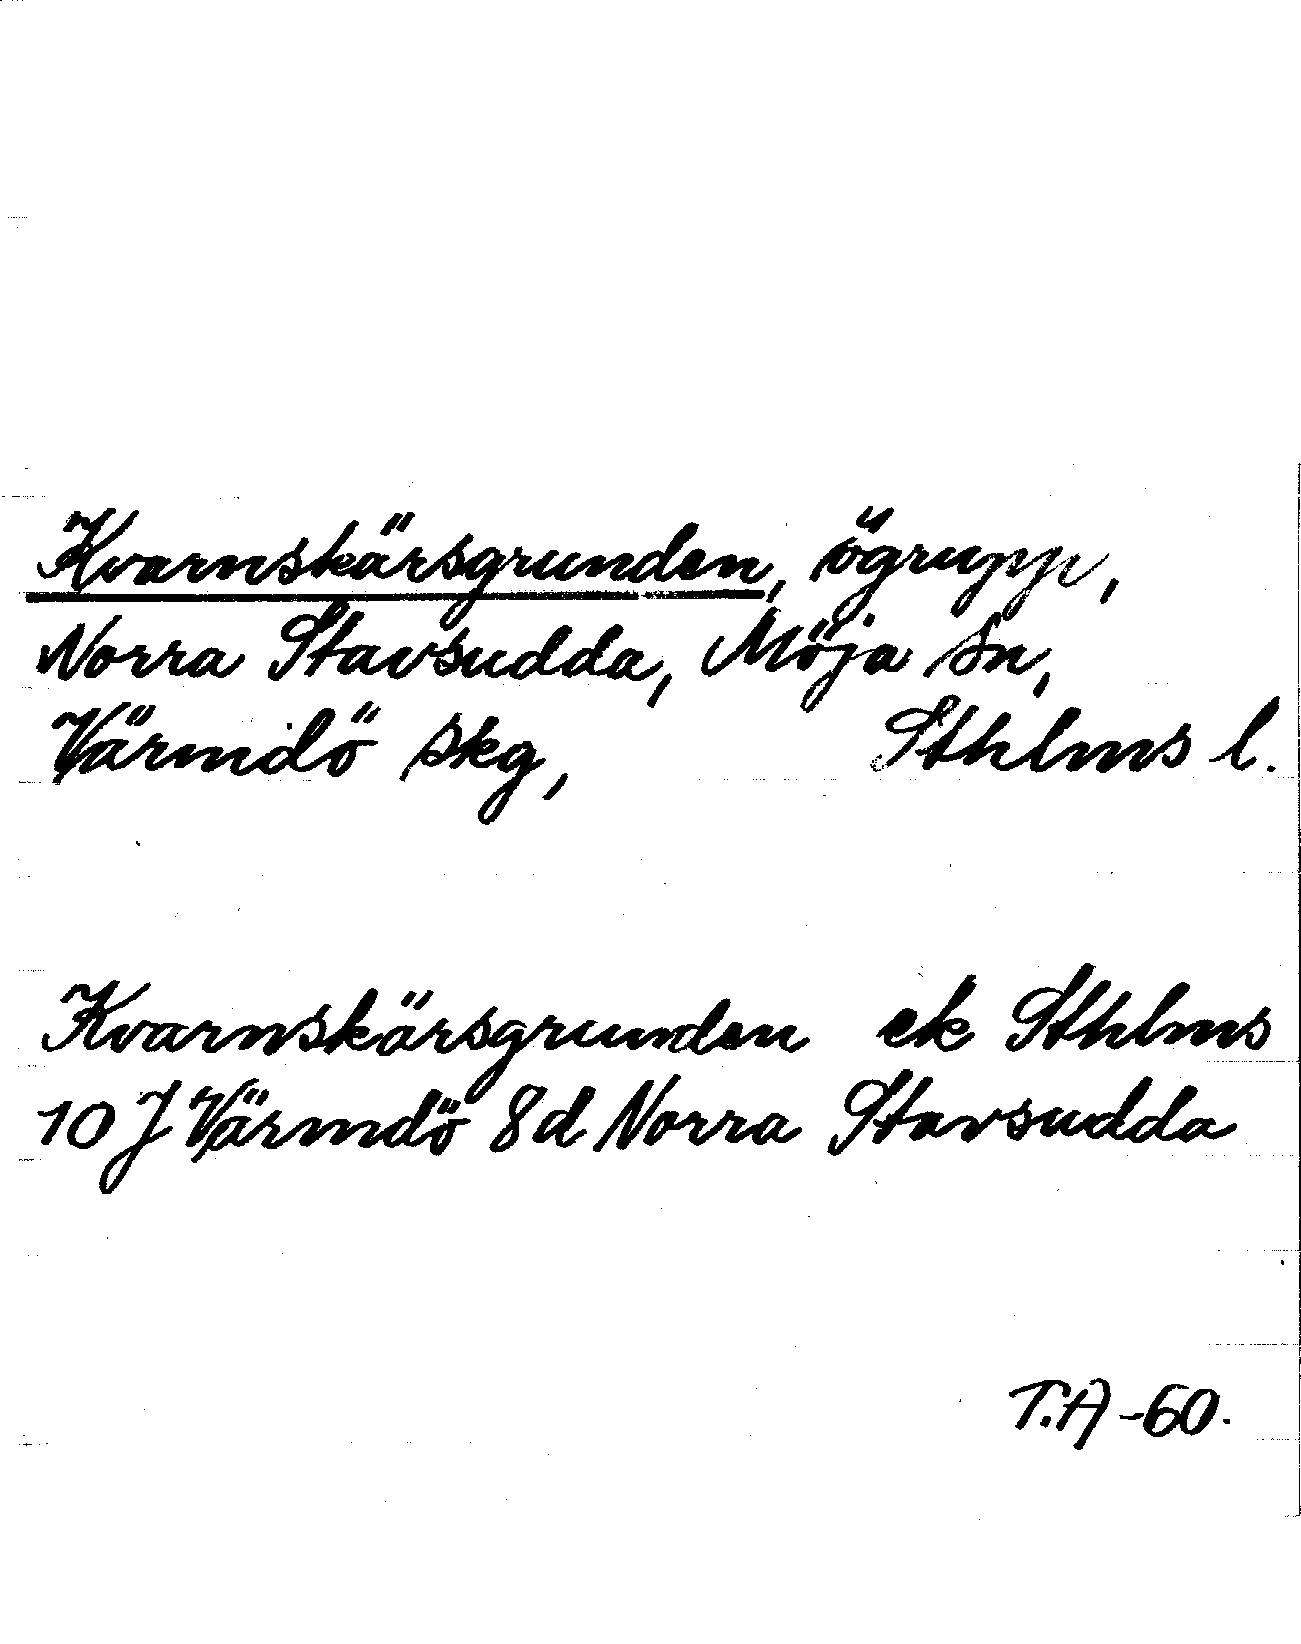 Kvarnskärsgrunden, ögrupp,
Norra Stavsudda, Möja sn,
Värmdö skg, Sthlms l.
Kvarnskärsgrunden ek Sthlms
10 J Värmdö 8d Norra Stavsudda
T.A -60.